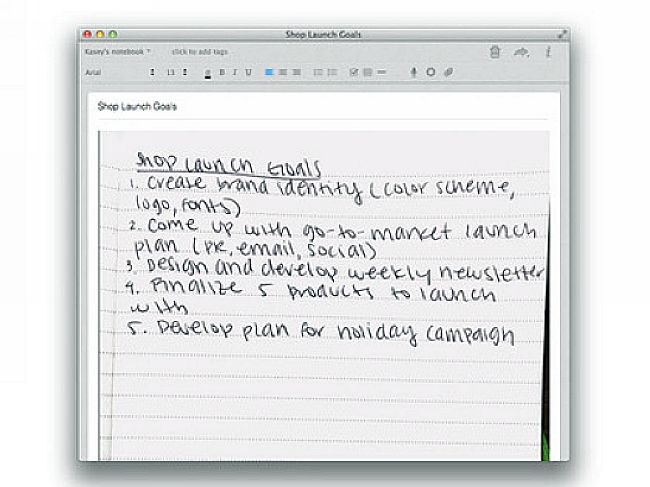 Shop Launch Goals
Kasey's notebook click to add tags
Arial 13 B I U
Shop Launch Goals
Shop Launch Goals
1. Create brand identity (color scheme,
logo, fonts)
2. Come up with go-to-market launch
plan (PR, email, social)
3. Design and develop weekly newsletter
4. Finalize 5 products to launch
with
5. Develop plan for holiday campaign